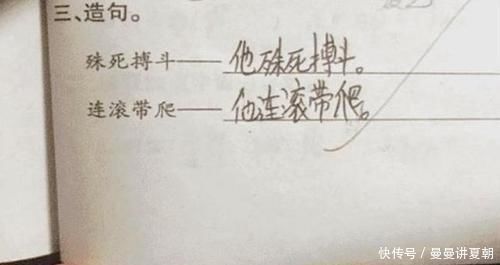 三、造句。
殊死搏斗——他殊死搏斗。
连滚带爬——他连滚带爬。
快传号/曼曼讲夏朝